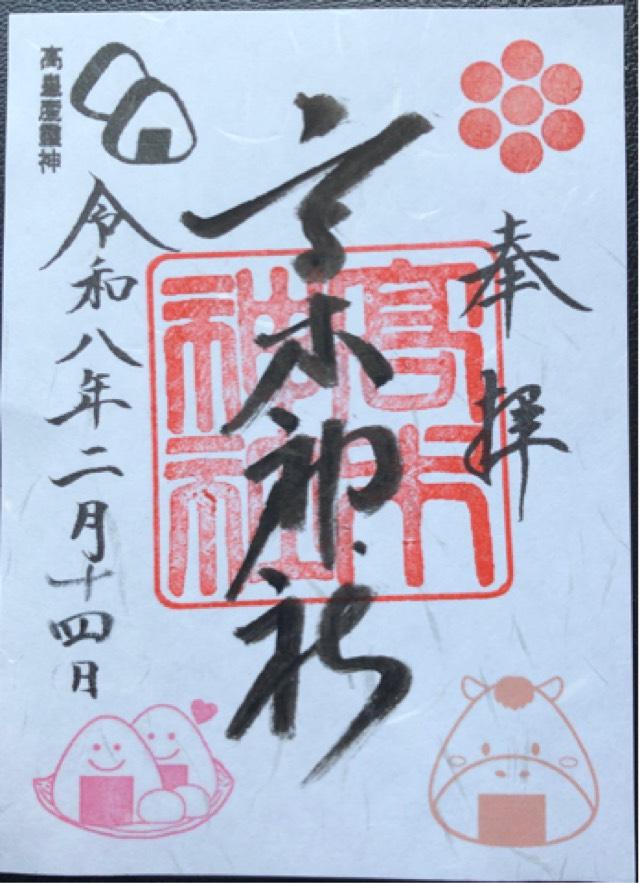 奉拝
高木神社
高木神社
令和八年二月十四日
高皇産靈神